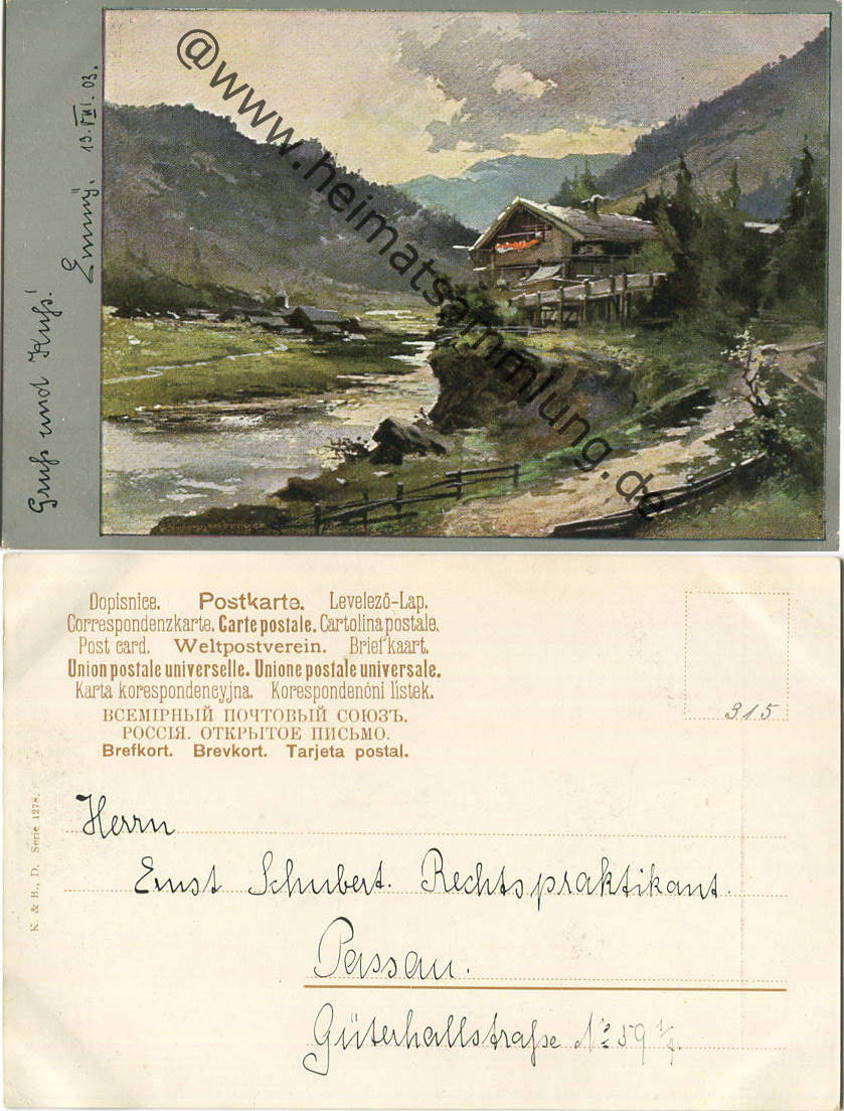 Gruß und Kuß!
Emmy. 19.VIII.03.
@www.heimatsammlung.de
Dopisnice. Postkarte. Levelező-Lap.
Correspondenzkarte. Carte postale. Cartolina postale.
Post card. Weltpostverein. Briefkaart.
Union postale universelle. Unione postale universale.
Karta korespondencyjna. Korespondenčni listek.
ВСЕМІРНЫЙ ПОЧТОВЫЙ СОЮЗЪ.
РОССІЯ. ОТКРЫТОЕ ПИСЬМО.
Brefkort. Brevkort. Tarjeta postal.
315
K. & B., D. Serie 1278.
Herrn
Ernst Schubert. Rechtspraktikant.
Passau.
Güterhallstraße No 59 1/4.